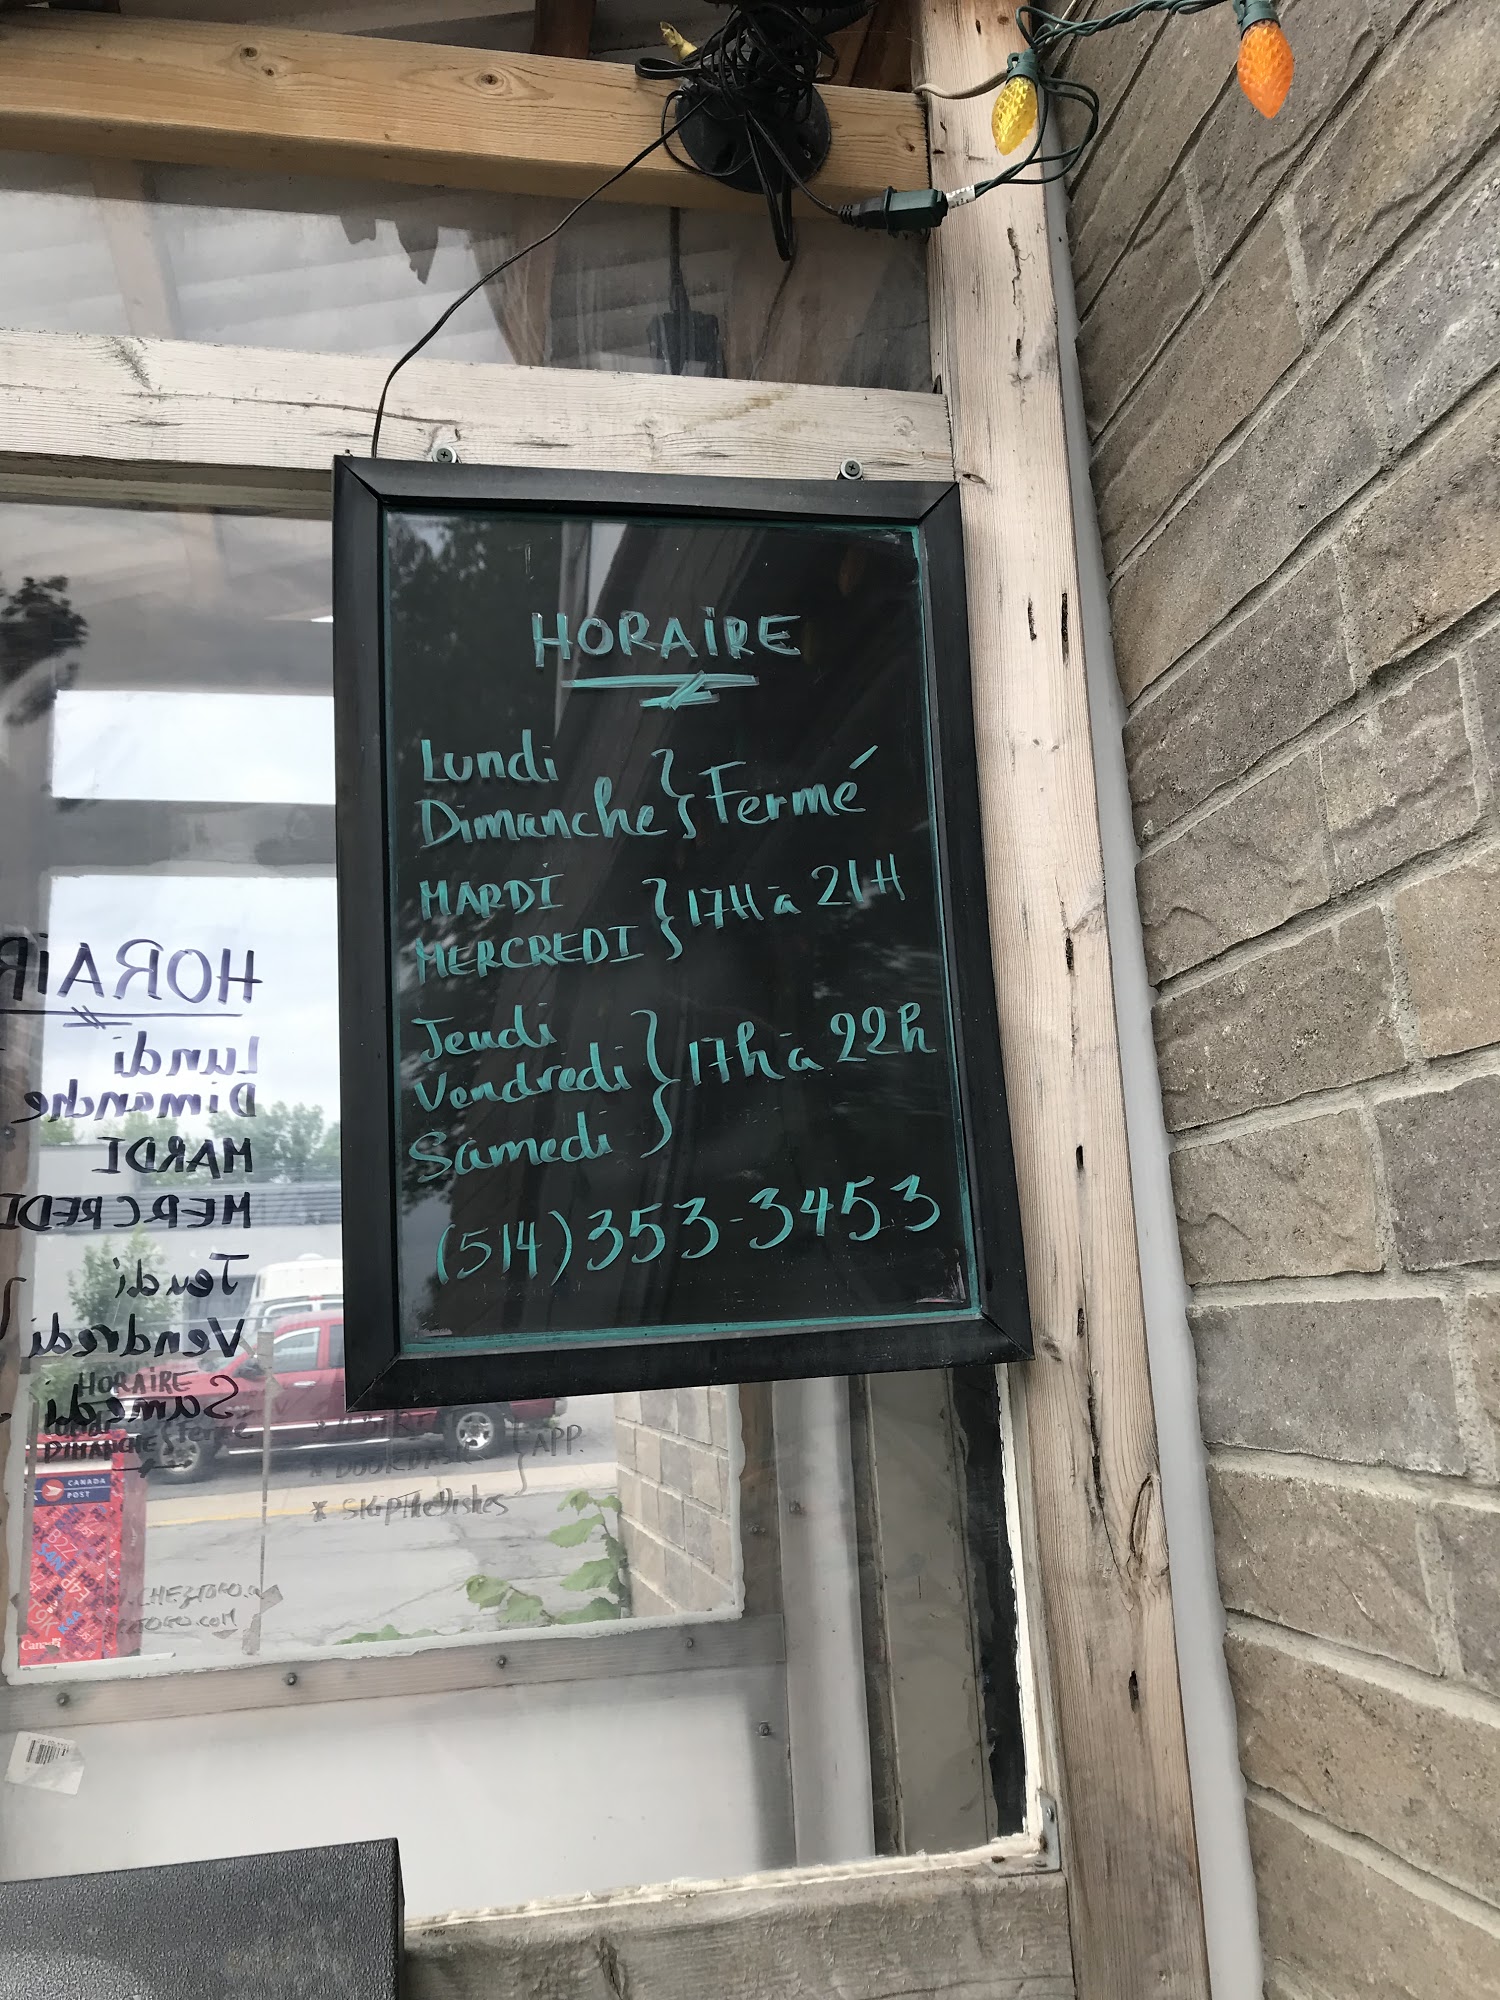 HORAIRE
Lundi
Dimanche } Fermé
MARDI
MERCREDI } 17H à 21H
Jeudi
Vendredi } 17h à 22h
Samedi
(514) 353-3453
HORAIR
Lundi
Dimanche
MARDI
MERCREDI
Jeudi
Vendredi
Samedi
HORAIRE
DIMANCHE } Fermé
DOORDASH } APP.
* SkipTheDishes
CANADA
POST